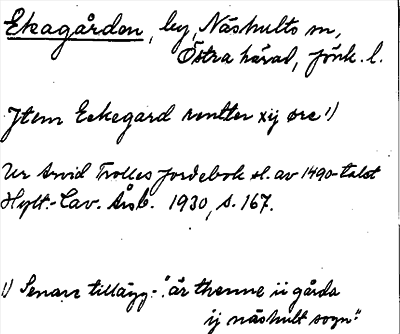 Ekagården, by, Näshults sn,
Östra härad, Jönk. l.
Jtem Eekegard rentter xij øre 1)
Ur Arvid Trolles jordebok sl. av 1490-talet
Hylt.-Cav. Årsb. 1930, s. 167.
1) Senare tillägg - "är thenne ii gårda
ij näshult sogn."